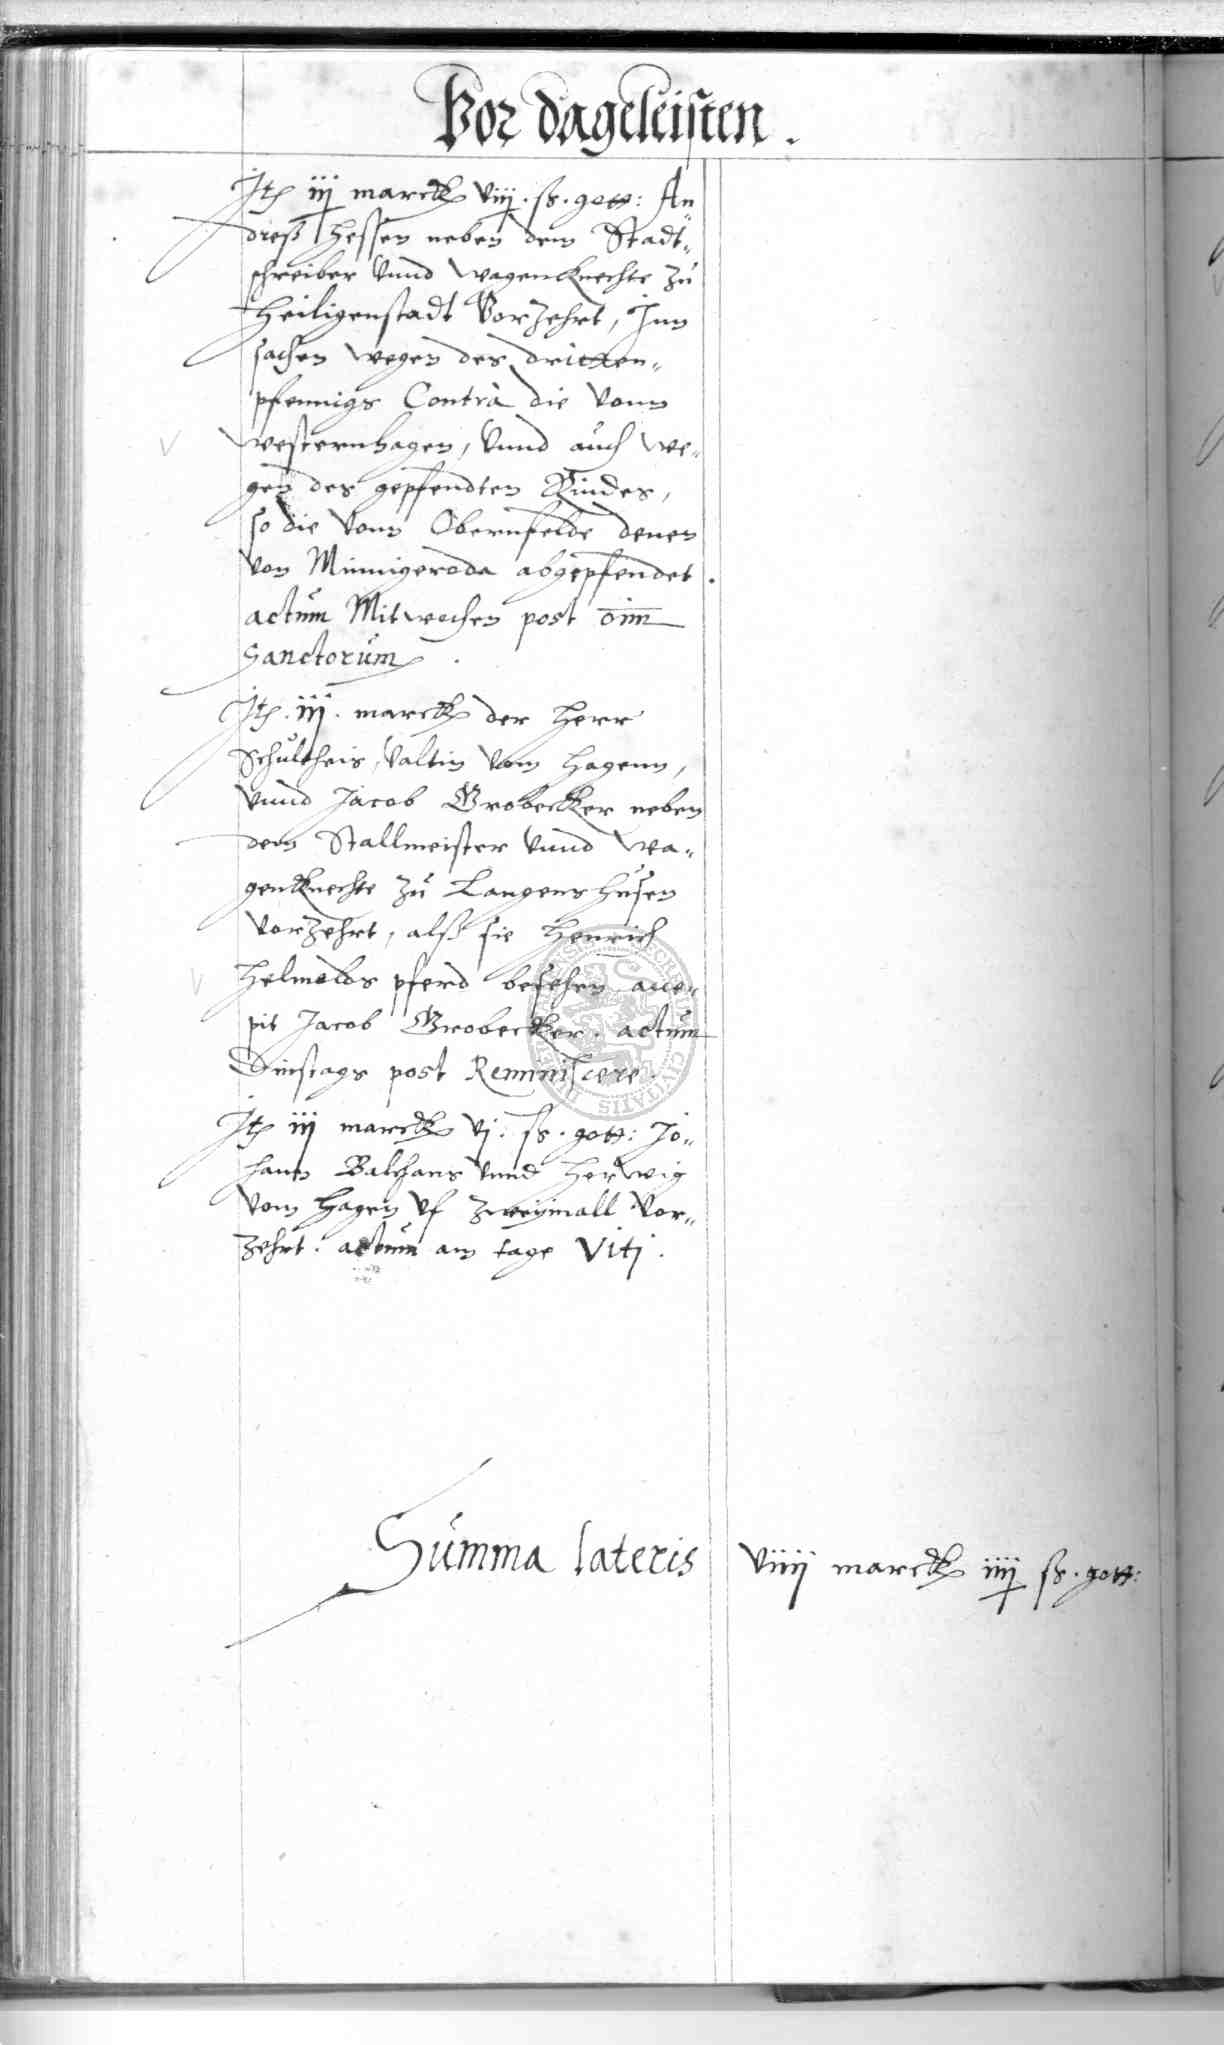 Vor dageleisten.
Itẽ iij marck viij. ß. gott: An
dreß Hessen neben dem Stadt„
schreiber vnnd wagenknechte zu
Heiligenstadt vorzehrt, Inn
sachen wegen des dritten„
pfennigs Contra die vonn
westernhagen, vnnd auch we„
gen des gepfendten Rindes,
so die vonn Obernfelde denen
von Minnigeroda abgepfendet.
actum Mitwochen post oim̄
Sanctorum.
Itẽ. iij. marck der Herr
Schultheis, valtin vom Hagenn,
vnnd Jacob Grobecker neben
dem Stallmeister vnnd wa„
genknechte zu Langenshusen
vorzehrt, alß sie Henrich
Helmolds pferd besehen acce„
pit Jacob Grobecker. actum
Dinstags post Reminiscere.
Itẽ iij marck vj. ß. gott: Jo„
hann Balthans vnnd Herwig
vom Hagen vf zweymall vor„
zehrt. actum am tage Viti.
Summa lateris viiij marck iiij ß. gott: